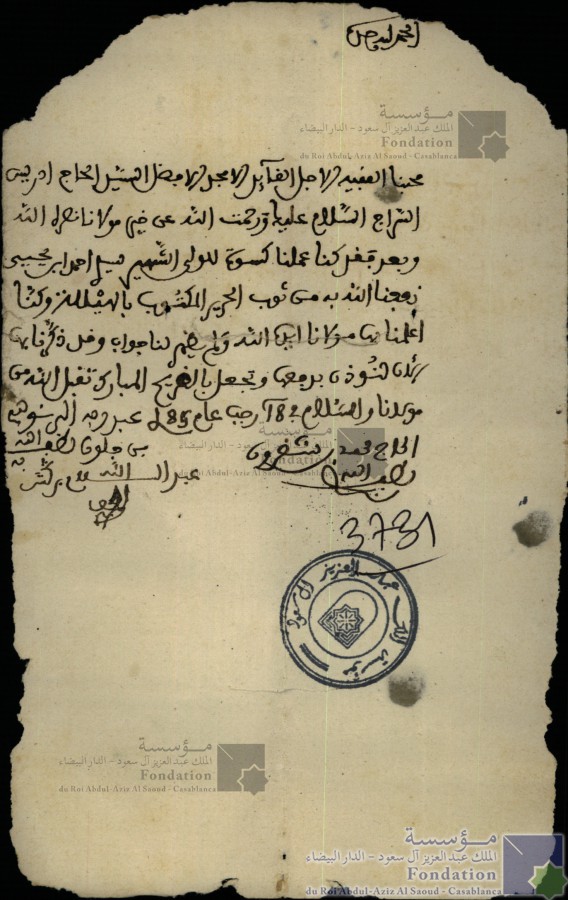 الحمد لله وحده
مؤسسة
الملك عبد العزيز آل سعود - الدار البيضاء
Fondation
du Roi Abdul-Aziz Al Saoud - Casablanca
محبنا الفقيه الاجل القائد الامجد الافضل السيد الحاج ادريس
السراج السلام عليك ورحمت الله عن خير مولانا نصره الله
وبعد فقد كنا عملنا كسوة للولي الشهير سيدي احمد ابن يحيى
نفعنا الله به من ثوب الحرير المكتوب وكنا
اعلمنا بها مولانا ايده الله ولم لنا جواب
وتجعل بالضريح المباركة تقبل الله من
مولانا والسلام 18 رجب عام عبد ربه
الحاج محمد بن شقرون بن جلون لطف الله به
لطف الله به عبد السلام
مؤسسة
الملك عبد العزيز آل سعود - الدار البيضاء
Fondation
du Roi Abdul-Aziz Al Saoud - Casablanca
3731
مؤسسة الملك عبد العزيز آل سعود
مؤسسة
الملك عبد العزيز آل سعود - الدار البيضاء
Fondation
du Roi Abdul-Aziz Al Saoud - Casablanca
مؤسسة
الملك عبد العزيز آل سعود - الدار البيضاء
Fondation
du Roi Abdul-Aziz Al Saoud - Casablanca